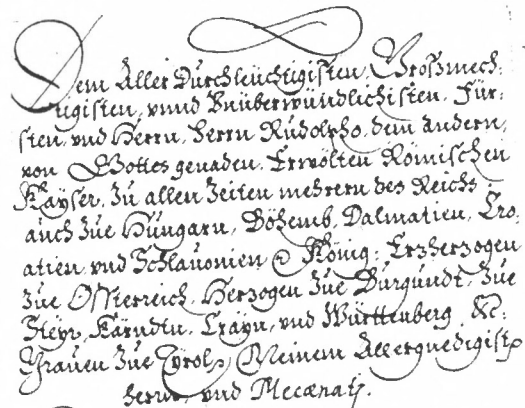 Dem Aller Durchleüchtigisten, Groszmech:
tigisten, vnnd Vnüberwündlichisten, Für-
sten, vnd Herrn, Herrn Rüdolpho, dem andern,
von Gottes genaden, Erwölten Römischen
Kayser, zu allen Zeiten mehrern des Reichs
auch züe Hüngarn, Böhemb, Dalmatien, Cro:
atien, vnd Schlauonien, &c. König, Erzherzogen
züe Ossterreich, Herzogen züe Bürgündt, züe
Steyr, Kärndtn, Crayn, vnd Württenberg, &c:
Grauen züe Tÿrol, Meinem Allergnedigist
herrn, vnd Mecænat.